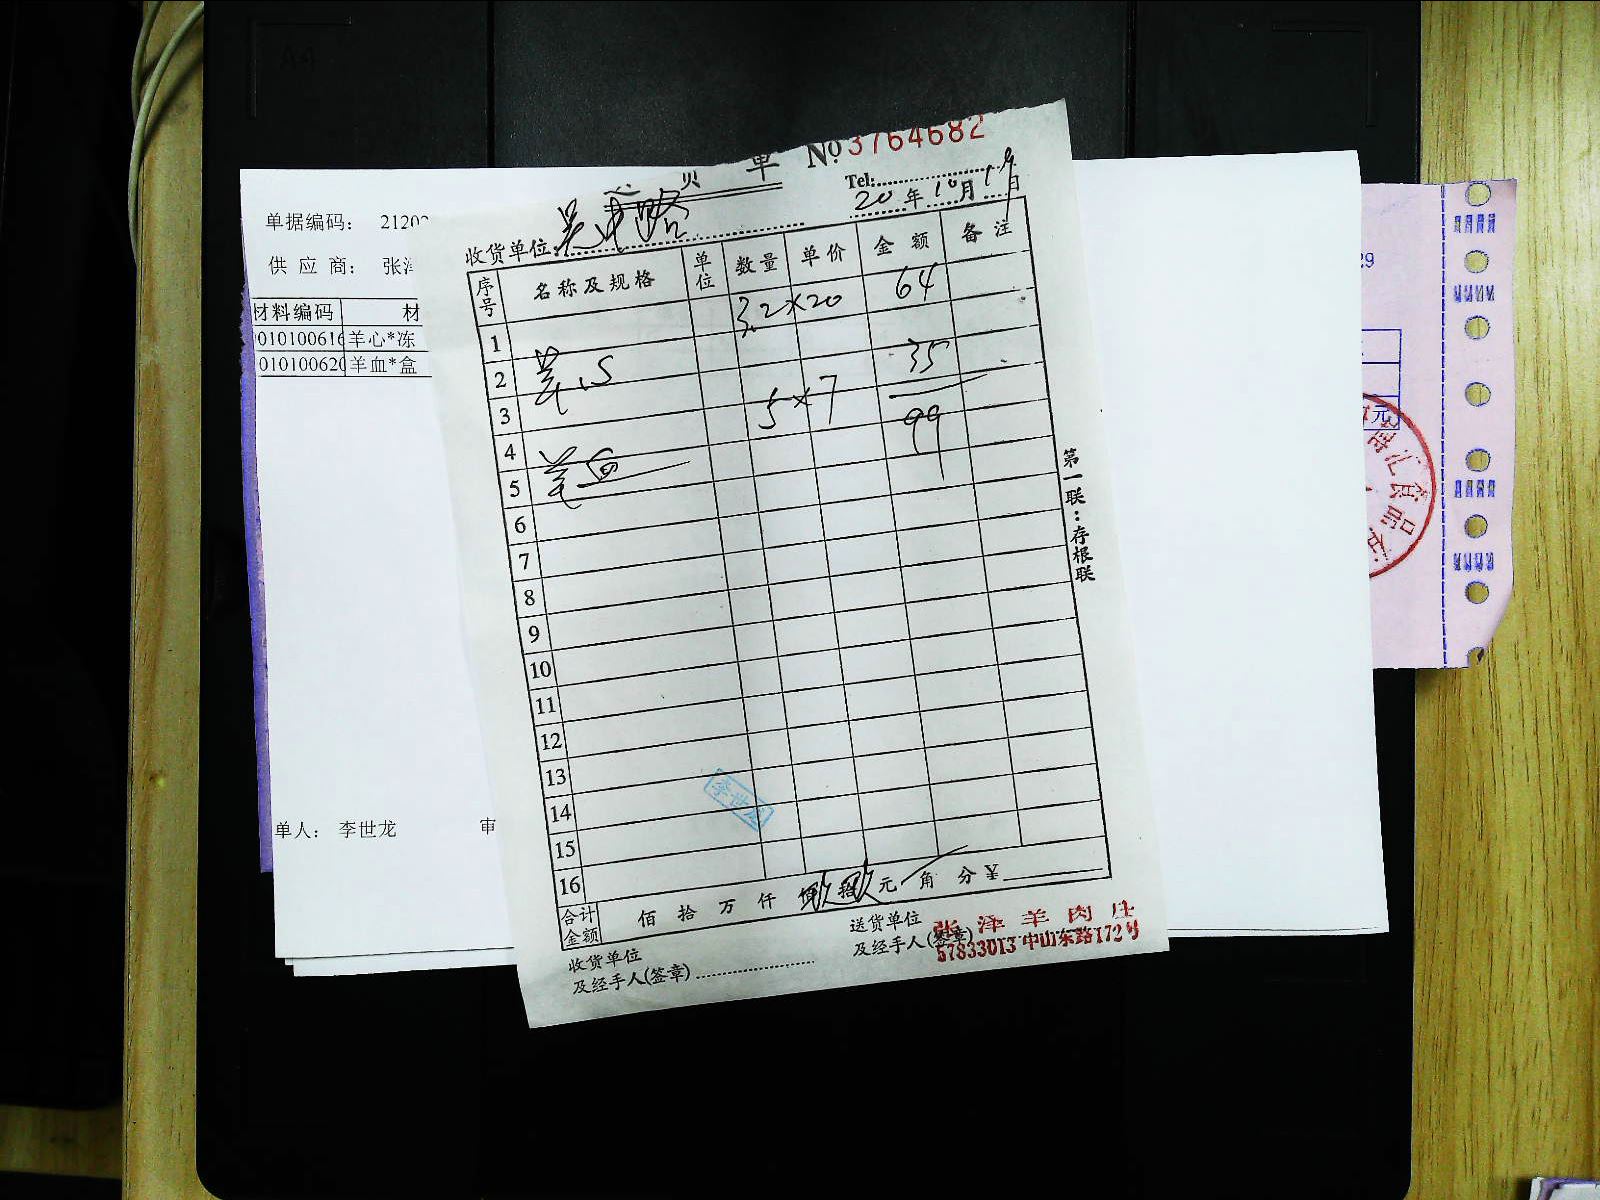 单 №3764682
Tel:
20年10月19日
收货单位:
序号 名称及规格 单位 数量 单价 金额 备注
3.2×20 64
1
2 羊心 35
3 5×7
99
4
5 羊血
6
7
8
9
10
11
12
13
14
15
16
合计金额 佰 拾 万 仟 玖拾玖元 角 分 ¥
收货单位及经手人(签章)
送货单位及经手人(签章)
张泽羊肉庄
57833013 中山东路172号
第一联:存根联
李世龙
单据编码: 2120
供应商: 张泽
材料编码 材
010100616 羊心*冻
010100620 羊血*盒
单人: 李世龙 审
29
元
汇食品